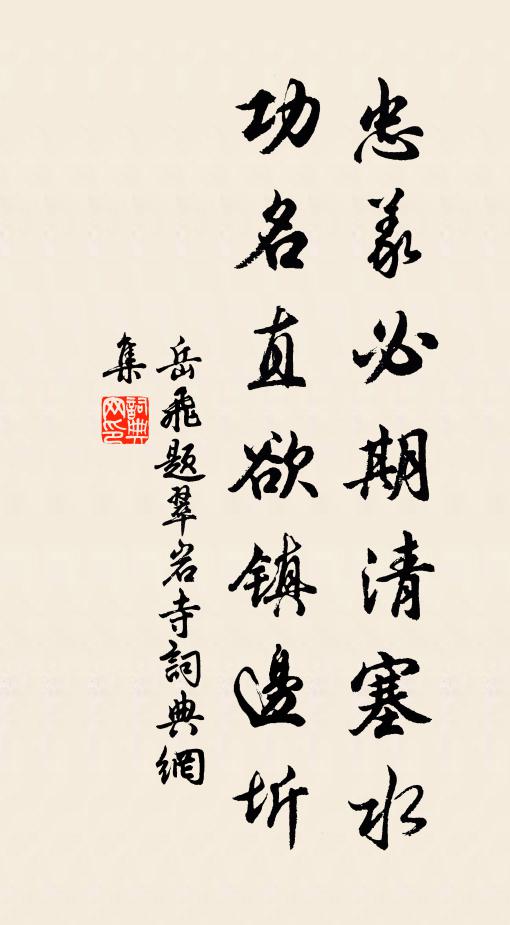 忠義必期清塞水
功名直欲镇邊圻
岳飛題翠岩寺詞典網
集
詞典
网印